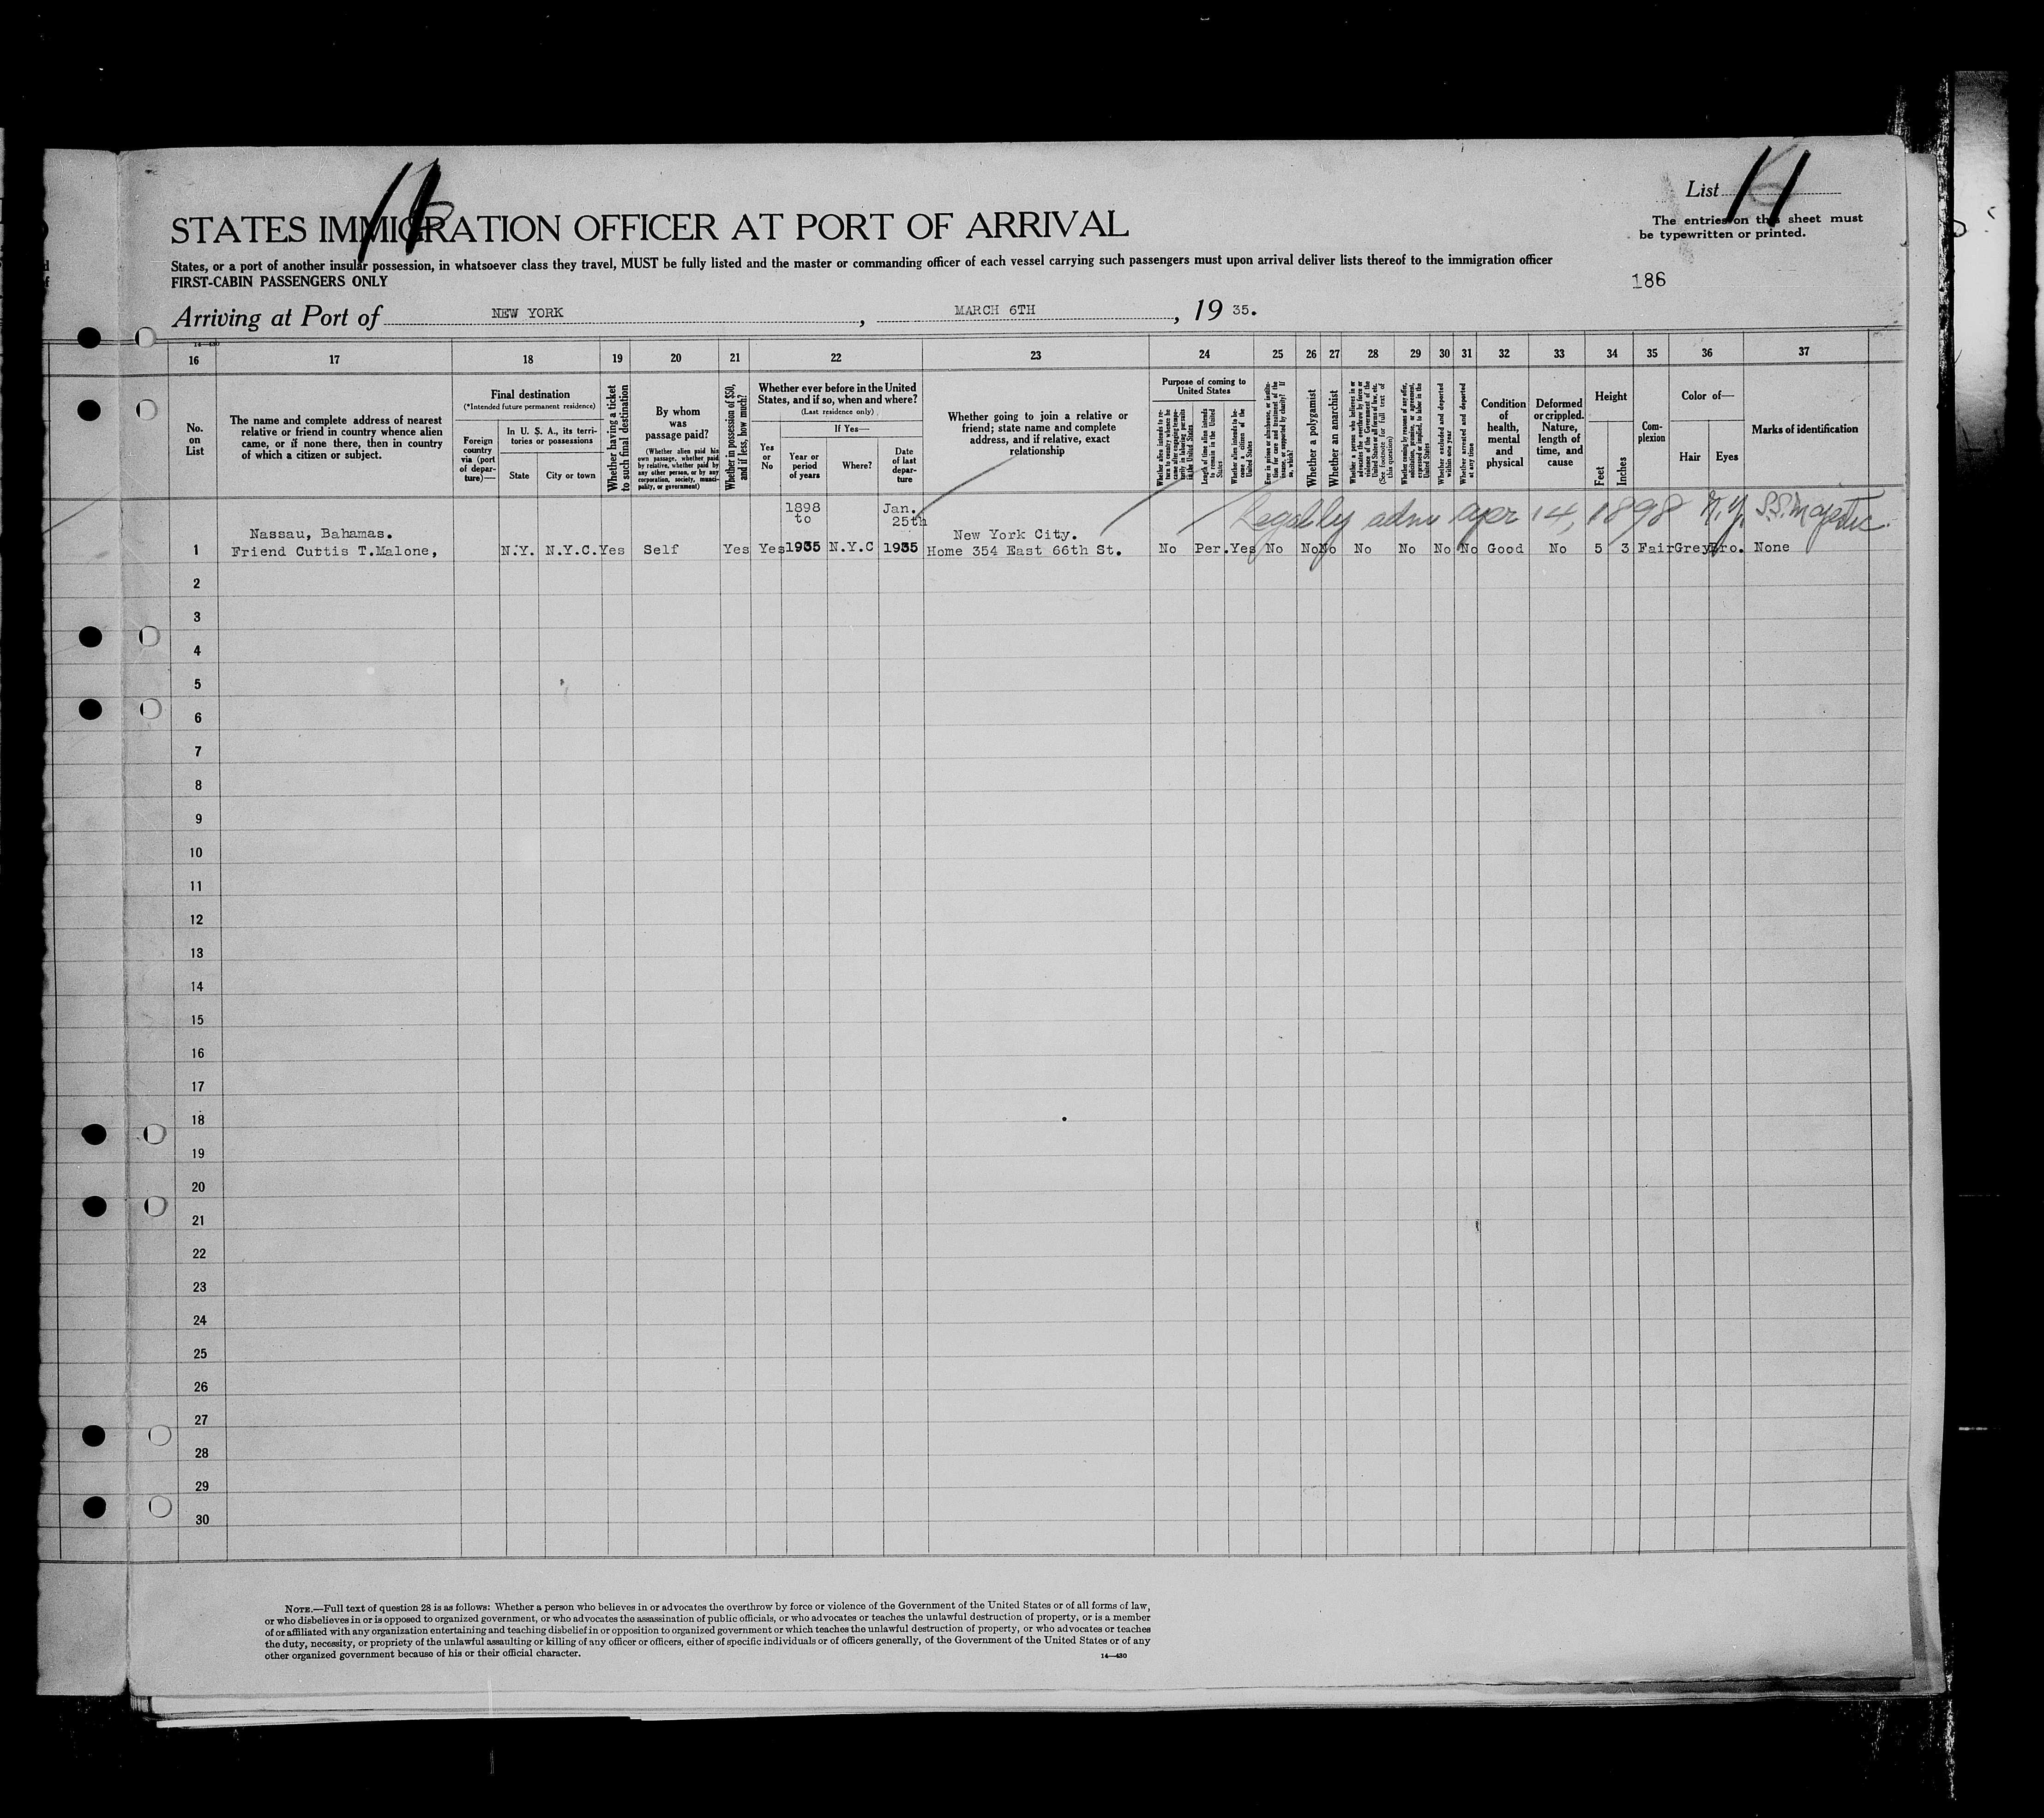 List 11
STATES IMMIGRATION OFFICER AT PORT OF ARRIVAL
The entries on this sheet must
be typewritten or printed.
States, or a port of another insular possession, in whatsoever class they travel, MUST be fully listed and the master or commanding officer of each vessel carrying such passengers must upon arrival deliver lists thereof to the immigration officer
FIRST-CABIN PASSENGERS ONLY
186
Arriving at Port of NEW YORK, MARCH 6TH, 19 35.
14—430
16 17 18 19 20 21 22 23 24 25 26 27 28 29 30 31 32 33 34 35 36 37
No.
on
List
The name and complete address of nearest
relative or friend in country whence alien
came, or if none there, then in country
of which a citizen or subject.
Final destination
(*Intended future permanent residence)
Foreign
country
via (port
of depar-
ture)—
In U. S. A., its terri-
tories or possessions
State
City or town
Whether having a ticket
to such final destination
By whom
was
passage paid?
(Whether alien paid his
own passage, whether paid
by relative, whether paid by
any other person, or by any
corporation, society, munici-
pality, or government)
Whether in possession of $50,
and if less, how much?
Whether ever before in the United
States, and if so, when and where?
(Last residence only)
Yes
or
No
If Yes—
Year or
period
of years
Where?
Date
of last
depar-
ture
Whether going to join a relative or
friend; state name and complete
address, and if relative, exact
relationship
Purpose of coming to
United States
Whether alien intends to re-
turn to country whence he
came after engaging tempo-
rarily in laboring pursuits
in the United States
Length of time alien intends
to remain in the United
States
Whether alien intends to be-
come a citizen of the
United States
Ever in prison or almshouse, or institu-
tion for care and treatment of the
insane, or supported by charity? If
so, which?
Whether a polygamist
Whether an anarchist
Whether a person who believes in or
advocates the overthrow by force or
violence of the Government of the
United States or all forms of law, etc.
(See footnote for full text of
this question)
Whether coming by reason of any offer,
solicitation, promise, or agreement,
expressed or implied, to labor in the
United States
Whether excluded and deported
within one year
Whether arrested and deported
at any time
Condition
of
health,
mental
and
physical
Deformed
or crippled.
Nature,
length of
time, and
cause
Height
Feet
Inches
Com-
plexion
Color of—
Hair
Eyes
Marks of identification
Legally adm Apr 14, 1898 N.Y. S.S. Majestic.
1898 Jan.
to 25th
Nassau, Bahamas. New York City.
1 Friend Curtis T.Malone, N.Y. N.Y.C. Yes Self Yes Yes 1935 N.Y.C 1935 Home 354 East 66th St. No Per. Yes No No No No No No No Good No 5 3 Fair Grey Bro. None
2
3
4
5
6
7
8
9
10
11
12
13
14
15
16
17
18
19
20
21
22
23
24
25
26
27
28
29
30
NOTE.—Full text of question 28 is as follows: Whether a person who believes in or advocates the overthrow by force or violence of the Government of the United States or of all forms of law,
or who disbelieves in or is opposed to organized government, or who advocates the assassination of public officials, or who advocates or teaches the unlawful destruction of property, or is a member
of or affiliated with any organization entertaining and teaching disbelief in or opposition to organized government or which teaches the unlawful destruction of property, or who advocates or teaches
the duty, necessity, or propriety of the unlawful assaulting or killing of any officer or officers, either of specific individuals or of officers generally, of the Government of the United States or of any
other organized government because of his or their official character.
14—430